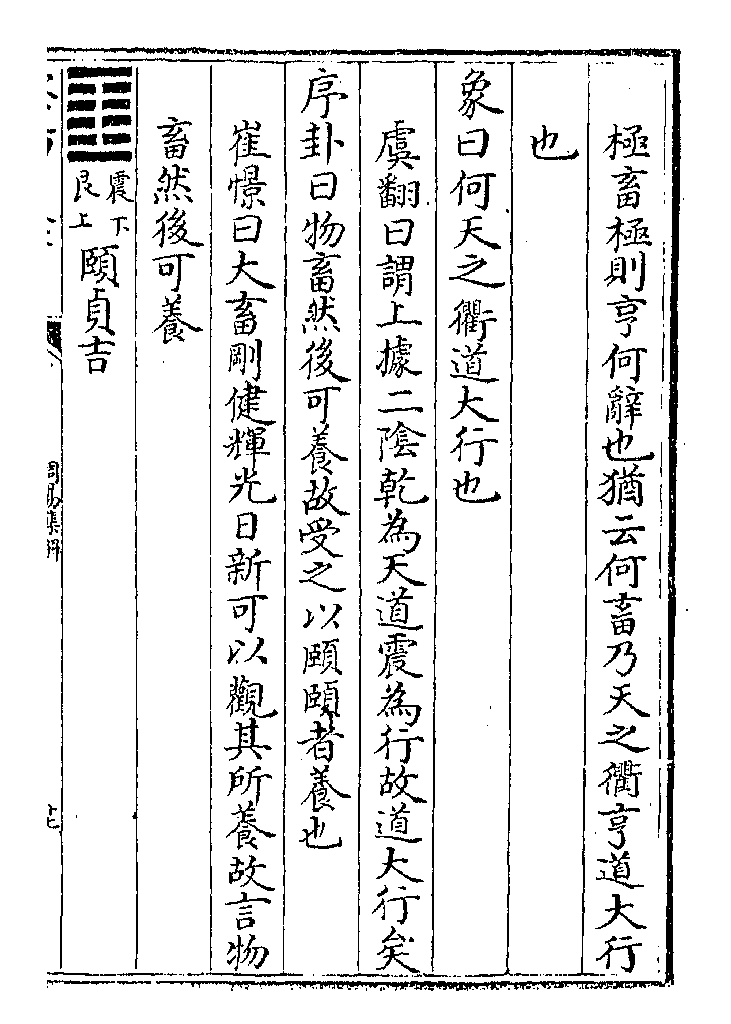 極畜極則亨何辭也猶云何畜乃天之衢亨道大行
也
象曰何天之衢道大行也
虞翻曰謂上據二陰乾為天道震為行故道大行矣
序卦曰物畜然後可養故受之以頤頤者養也
崔憬曰大畜剛健輝光日新可以觀其所養故言物
畜然後可養
䷚震下艮上頤貞吉
周易集解